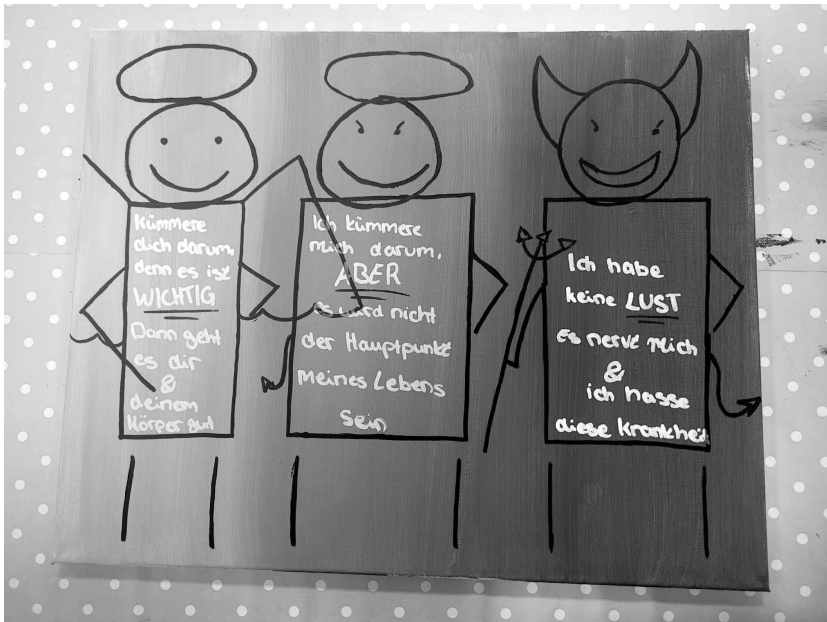 Kümmere
dich darum,
denn es ist
WICHTIG
Dann geht
es dir
&
deinem
Körper gut
Ich kümmere
mich darum,
ABER
es wird nicht
der Hauptpunkt
meines Lebens
sein
Ich habe
keine LUST
Es nervt mich
&
ich hasse
diese Krankheit